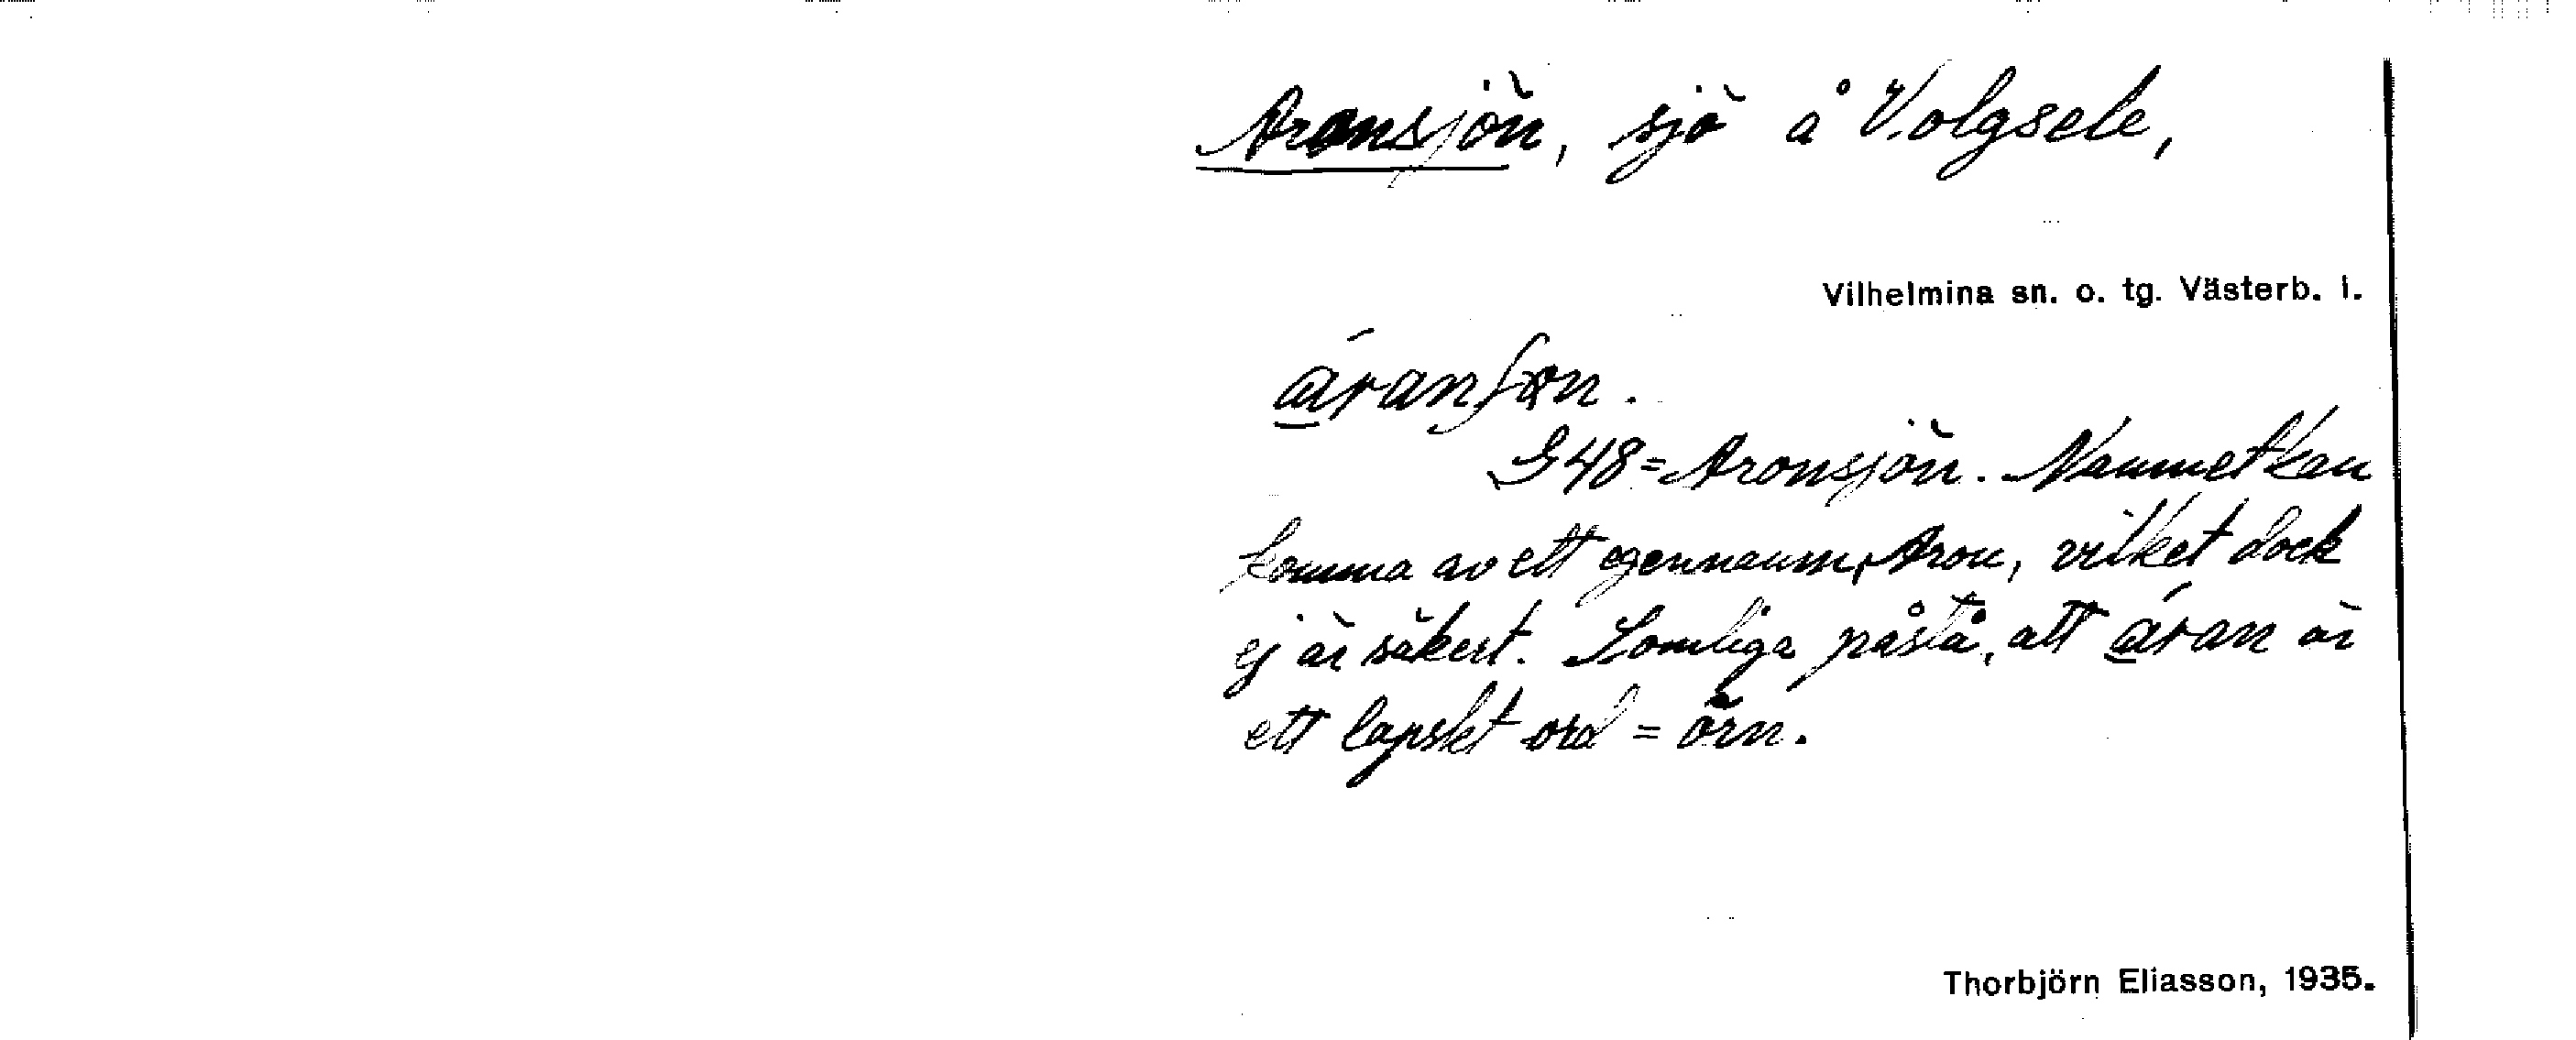 Aronsjön, sjö å Volgsele,
Vilhelmina sn. o. tg. Västerb. l.
a̲ŕanʃɵn.
G48 = Aronsjön. Namnet kan
komma av ett egennamn, Aron, vilket dock
ej är säkert. Somliga påstå, att a̲ŕan är
ett lapskt ord = örn.
Thorbjörn Eliasson, 1935.